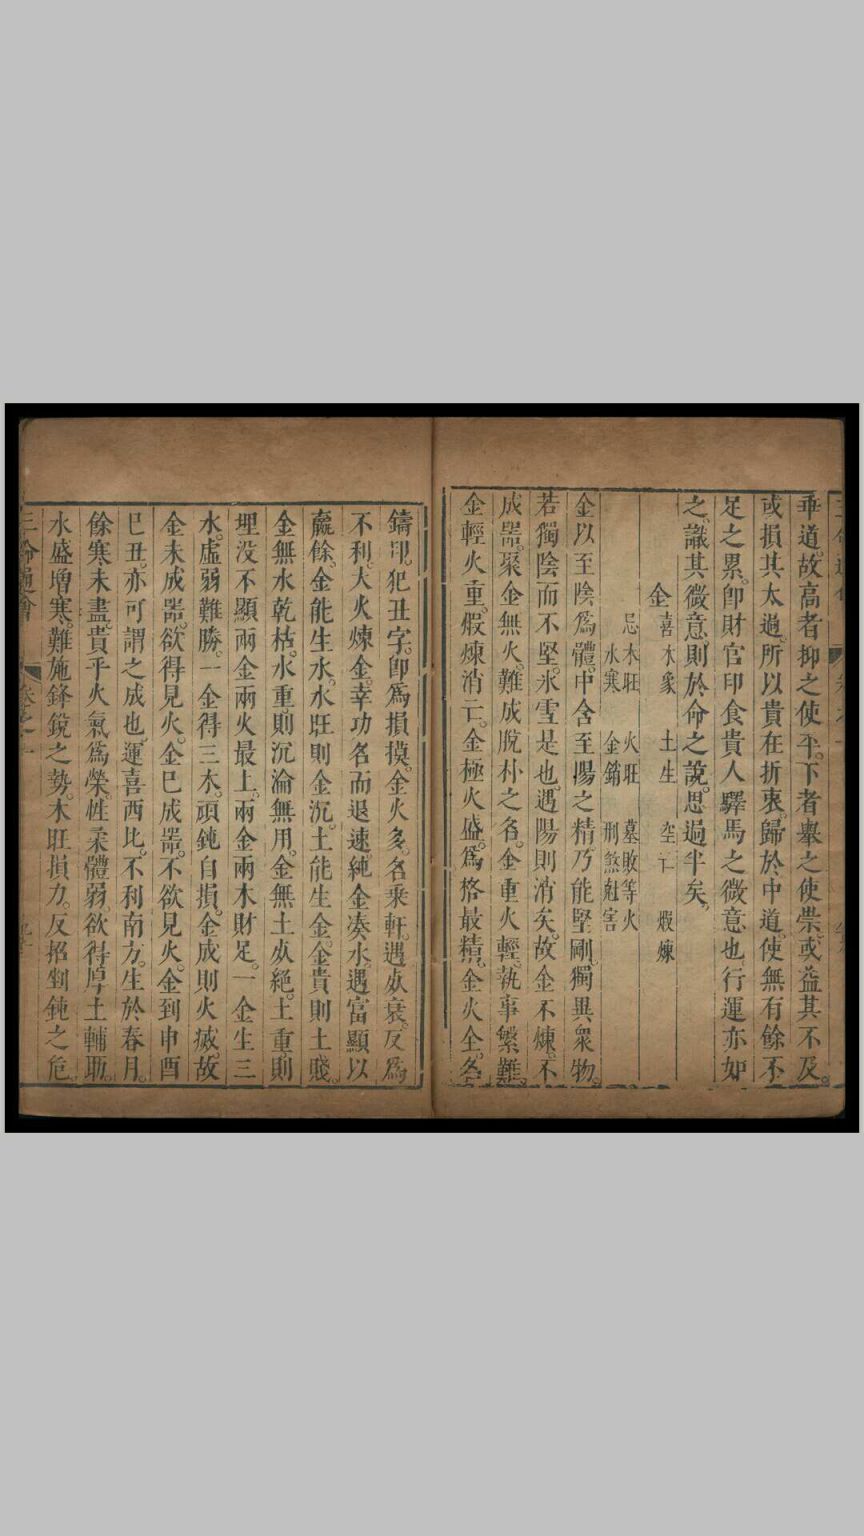 乖道故高者抑之使平下者舉之使崇或益其不及
或損其太過所以貴在折衷歸於中道使無有餘不
足之累即財官印食貴人驛馬之微意也行運亦如
之識其微意則於命之說思過半矣
金 喜木象 土生 空亡 煆煉
忌木旺 火旺 墓敗等火
水寒 金銷 刑煞尅害
金以至陰爲體中含至陽之精乃能堅剛獨異衆物
若獨陰而不堅氷雪是也遇陽則消矣故金不煉不
成噐聚金無火難成脫朴之名金重火輕執事繁難
金輕火重煆煉消亡金極火盛爲格最精金火全名
鑄印犯丑字即爲損摸金火多名乘軒遇死衰反爲
不利大火煉金幸功名而退速純金凑水遇富顯以
贏餘金能生水水旺則金沉土能生金金貴則土賤
金無水乾枯水重則沉淪無用金無土死絶土重則
埋没不顯兩金兩火最上兩金兩木財足一金生三
水虛弱難勝一金得三木頑鈍自損金成則火滅故
金未成噐欲得見火金已成噐不欲見火金到申酉
巳丑亦可謂之成也運喜西北不利南方生於春月
餘寒未盡貴乎火氣爲榮性柔體弱欲得厚土輔助
水盛增寒難施鋒銳之勢木旺損力反招剉鈍之危
三命通會 卷之二